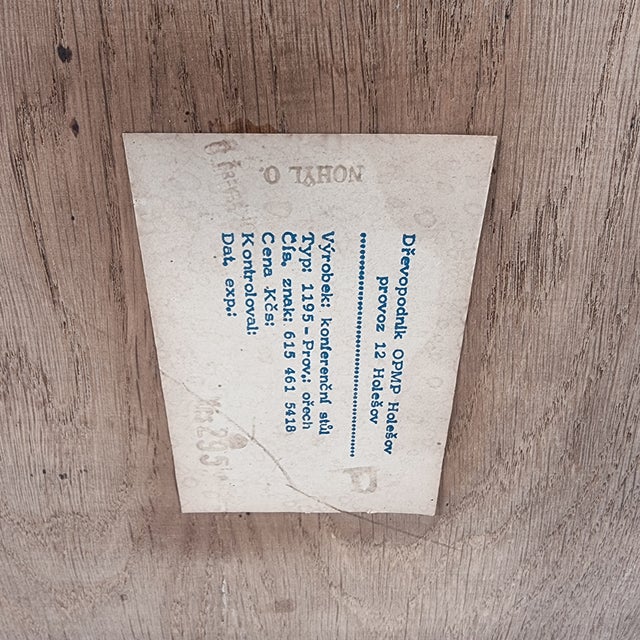 Dřevopodnik OPMP Holešov
provoz 12 Holešov
Výrobek: konferenční stůl
Typ: 1195 - Prov.: ořech
Čís. znak: 615 461 5418
Cena Kčs:
Kontroloval:
Dat. exp.:
NOHÝL O.
P